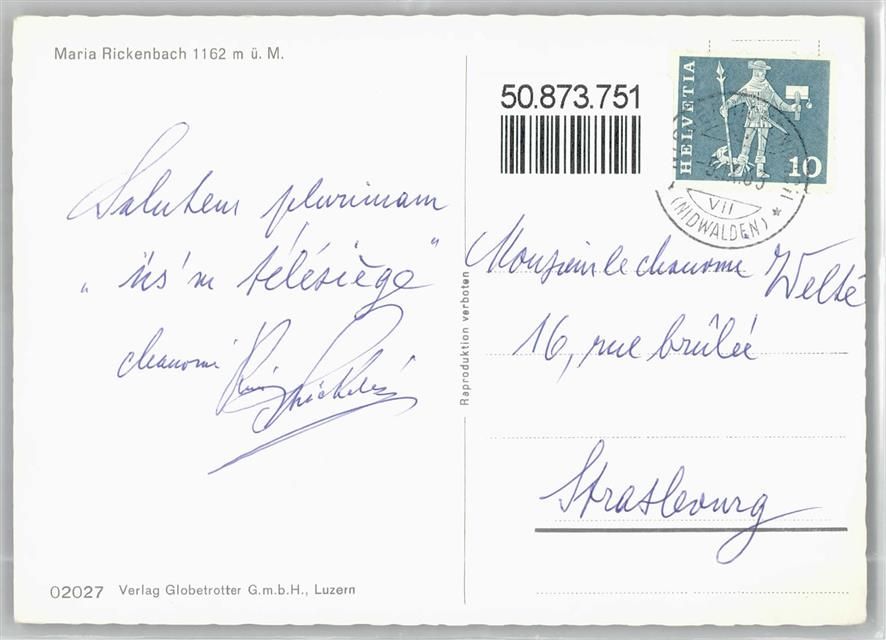 Maria Rickenbach 1162 m ü. M.
Salutem plurimam
„ üs'm télésiège "
chanoni
02027 Verlag Globetrotter G.m.b.H., Luzern
Raproduktion verboten
50.873.751
HELVETIA
10
VII
(NIDWALDEN)
Monsieur le chanoine Welté
16, rue brûlée
Strasbourg